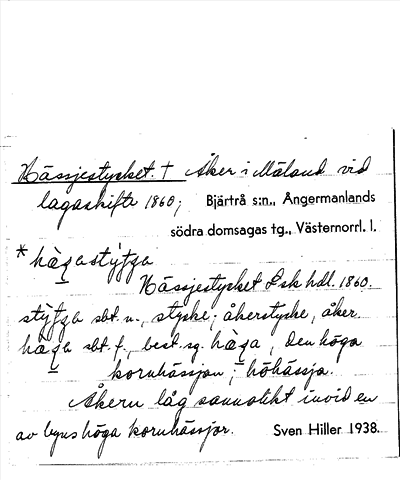 Hässjestycket. † Åker i Måland vid
lagaskifte 1860; Bjärtrå s:n., Ångermanlands
södra domsagas tg., Västernorrl. l.
* hàgastýtga
Hässjestycket Lsk hdl. 1860.
stýtga sbt. n., stycke; åkerstycke, åker.
hàga sbt. f., best. sg. hàga, den höga
kornhässjan; höhässja.
Åkern låg sannolikt invid en
av byns höga kornhässjor. Sven Hiller 1938.